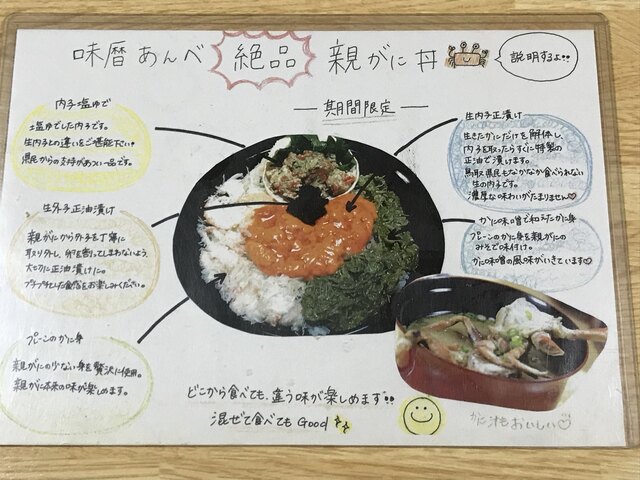 味暦あんべ 絶品 親がに丼
説明するよ!!
― 期間限定 ―
内子塩ゆで
塩ゆでした内子です。
生内子との違いをご堪能下さい。
県民からの支持があつい一品です。
生外子正油漬け
親がにから外子を丁寧に
取り外し、卵を割ってしまわないよう、
大切に正油漬けに。
プチプチとした食感をお楽しみください。
プレーンのかに身
親がにの少ない身を贅沢に使用。
親がに本来の味が楽しめます。
生内子正油漬け
生きたかにだけを解体し、
内子を取ったらすぐに特製の
正油で漬けます。
鳥取県民もなかなか食べられない
生の内子です。
濃厚な味わいがたまりません♡
かに味噌で和えたかに身
プレーンのかに身を親がにの
みそで味付け。
かに味噌の風味がいきています♡
どこから食べても、違う味が楽しめます!!
混ぜて食べてもGood
かに汁もおいしい♡